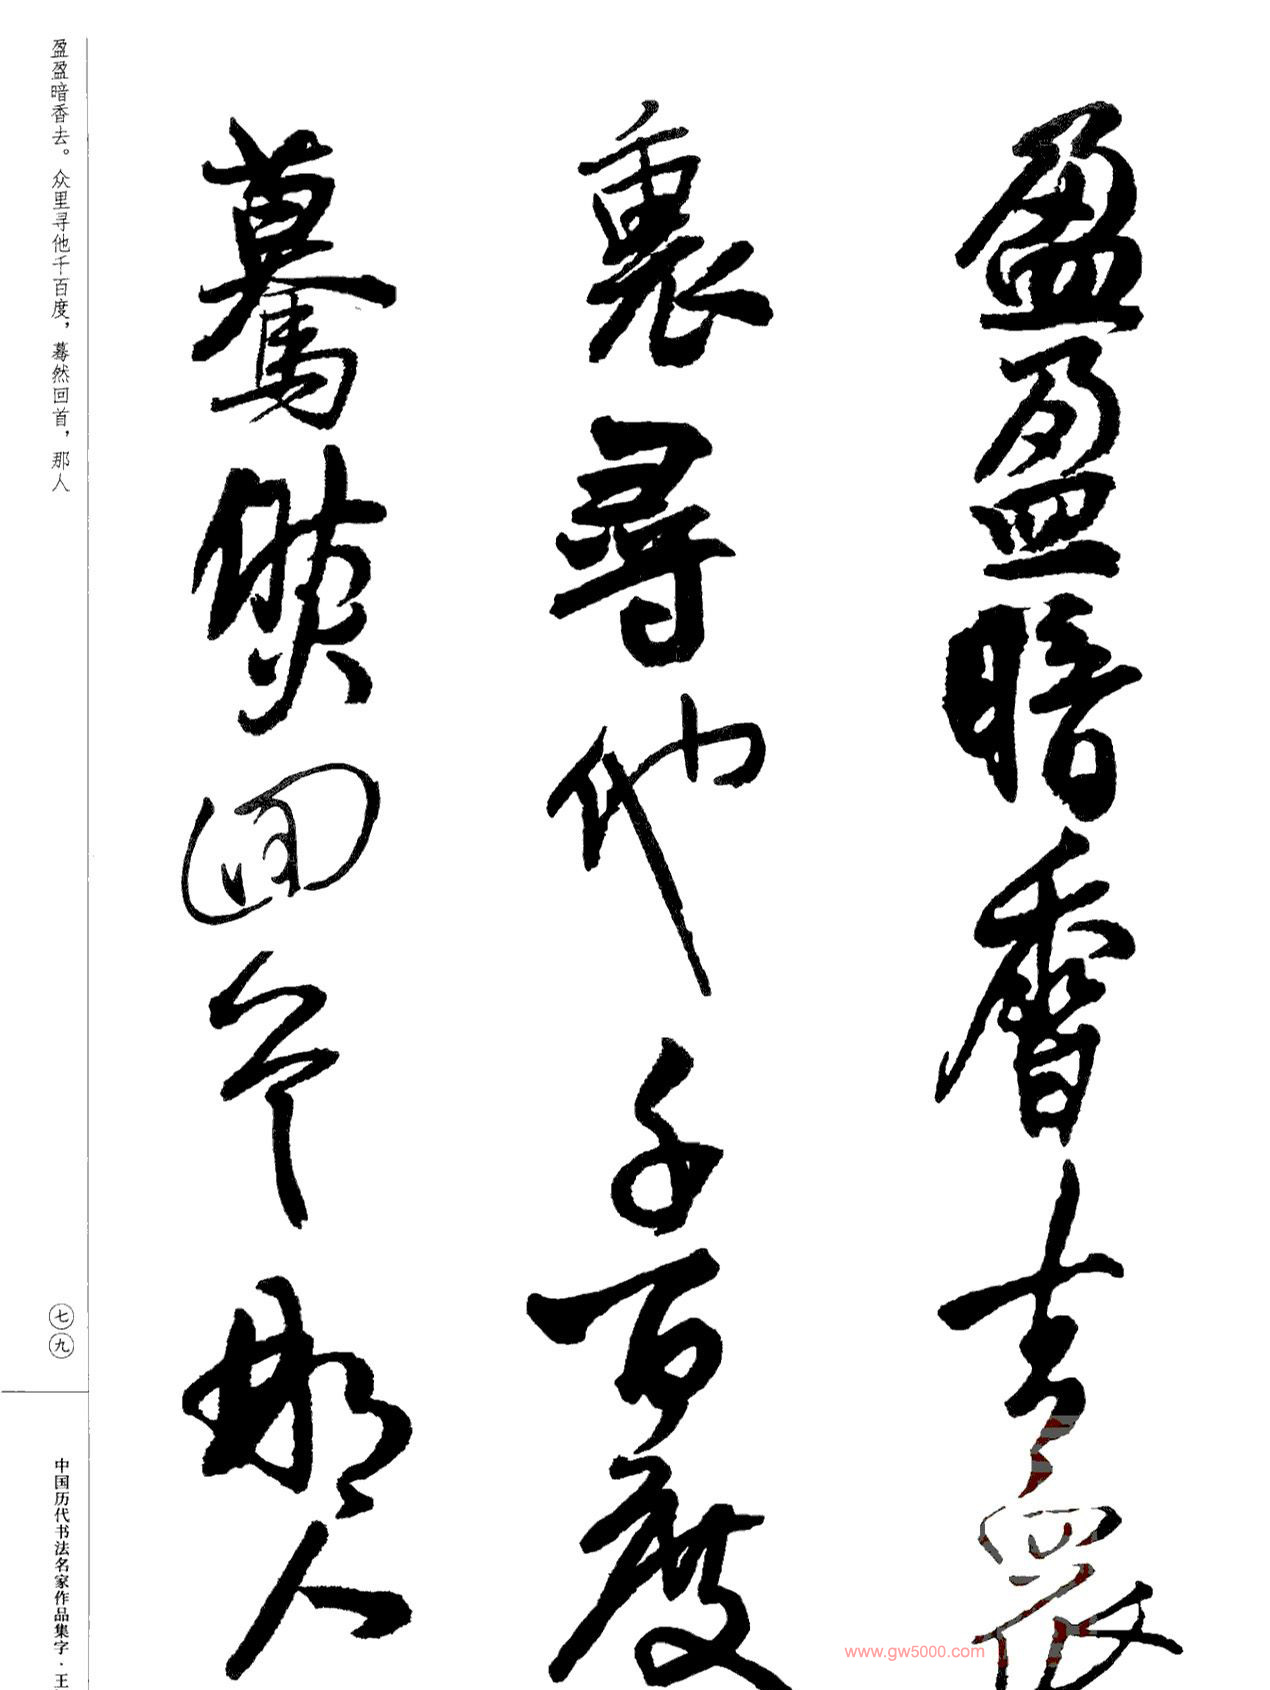 盈盈暗香去眾
裏尋他千百度
驀然回首那人
盈盈暗香去。众里寻他千百度，蓦然回首，那人
七九
中国历代书法名家作品集字·王
www.gw5000.com